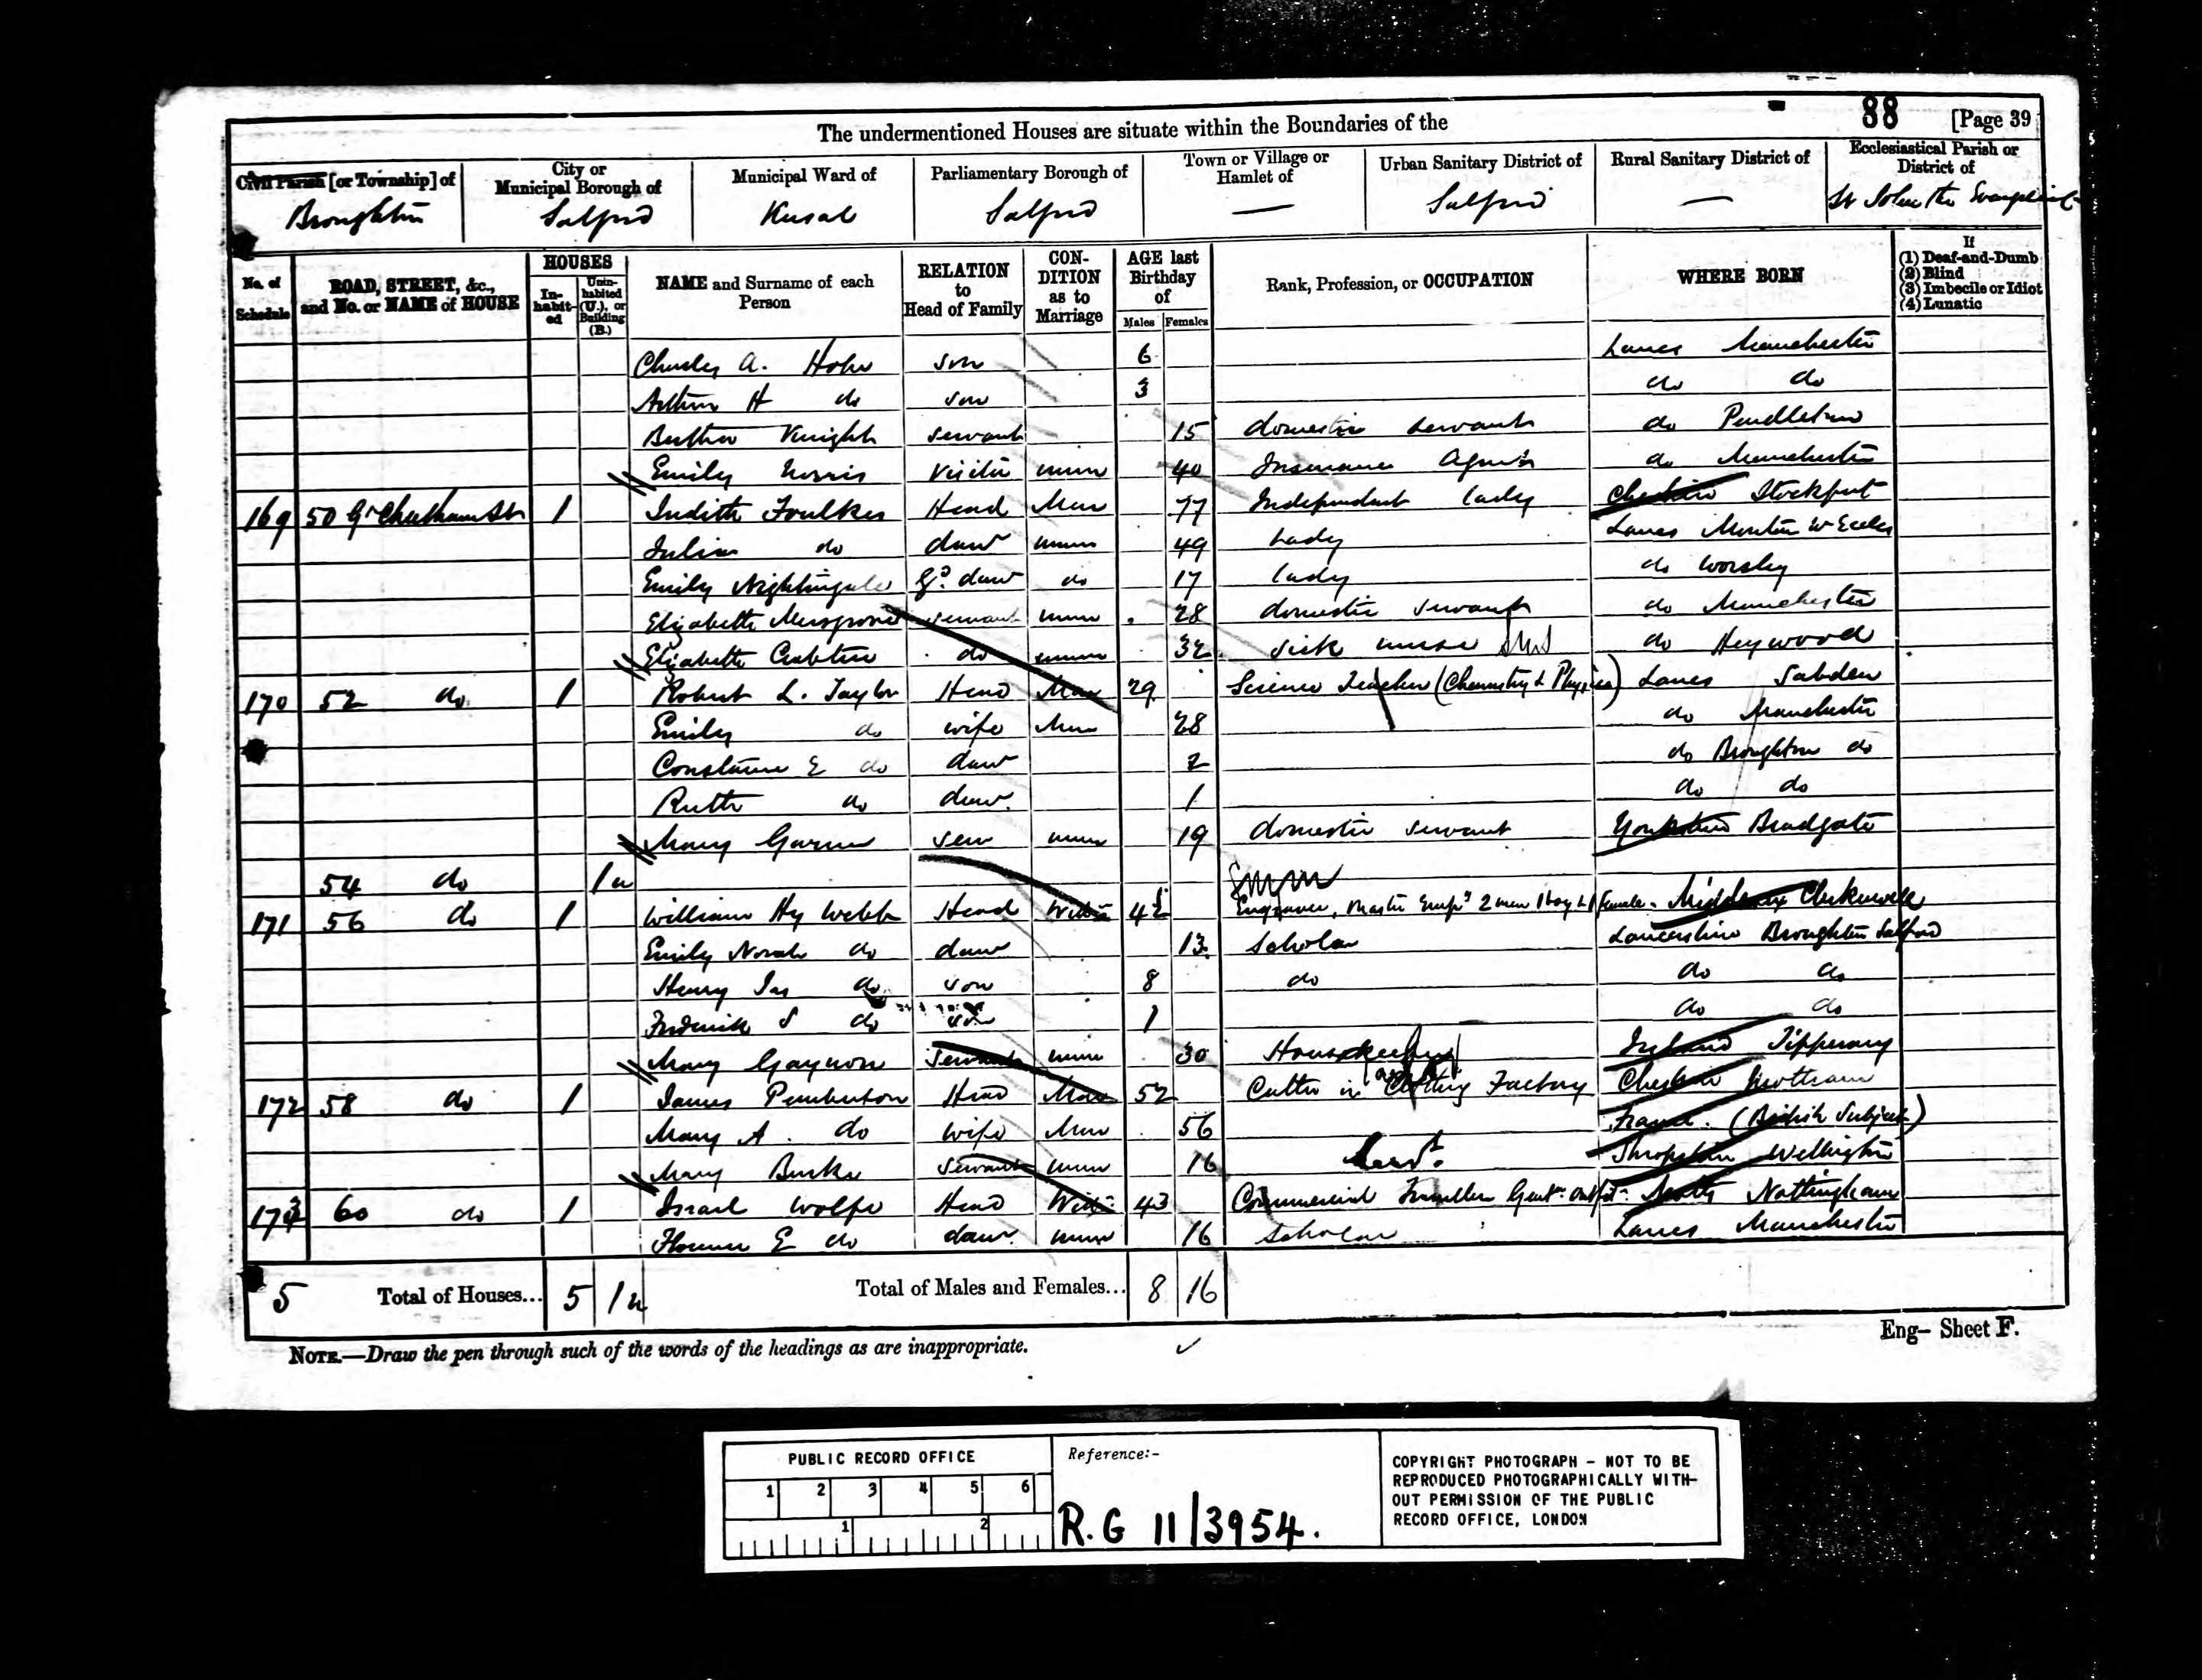 88 [Page 39
The undermentioned Houses are situate within the Boundaries of the
Civil Parish [or Township] of
Broughton
City or Municipal Borough of
Salford
Municipal Ward of
Kersal
Parliamentary Borough of
Salford
Town or Village or Hamlet of
—
Urban Sanitary District of
Salford
Rural Sanitary District of
—
Ecclesiastical Parish or District of
St John the Evangelist
No. of Schedule
ROAD, STREET, &c., and No. or NAME of HOUSE
HOUSES
In-habit-ed
Unin-habited (U.), or Building (B.)
NAME and Surname of each Person
RELATION to Head of Family
CON-DITION as to Marriage
AGE last Birthday of
Males Females
Rank, Profession, or OCCUPATION
WHERE BORN
If
(1) Deaf-and-Dumb
(2) Blind
(3) Imbecile or Idiot
(4) Lunatic
Charles A. son 6 Lancs Manchester
Arthur H do son 3 do do
Bertha Knight servant 15 domestic servant do Pendleton
Emily Norris visitor unm 40 Insurance Agent do Manchester
169 50 Gt Cheetham St 1 Judith Foulkes Head Mar 77 Independent lady Cheshire Stockport
Julia do daur unm 49 Lady Lancs Eccles
Emily Nightingale Gd. daur do 17 lady do Worsley
Elizabeth Musgrove servant unm 28 domestic servant do Manchester
Elizabeth do unm 32 sick nurse do Heywood
170 52 do 1 Robert L. Taylor Head Mar 29 Science Teacher (Chemistry & Physics) Lancs Sabden
Emily do wife Mar 28 do Manchester
Constance E do daur 2 do Broughton do
Ruth do daur. 1 do do
Mary serv unm 19 domestic servant Yorkshire
54 do 1u
171 56 do 1 William Hy Webb Head Widr 42 Engraver, Master Empg 2 men 1 boy & 1 female Middlesex Clerkenwell
Emily Norah do daur 13 Scholar Lancashire Broughton Salford
Henry Jas do son 8 do do do
Frederick S do son 1 do do
Mary Gaynon Servant unm 30 Housekeeper Ireland Tipperary
172 58 do 1 James Pemberton Head Mar 52 Cutter in Factory Cheshire Mottram
Mary A. do wife Mar 56 France. (British Subject)
Mary Burke Servant unm 16 Servt. Shropshire Wellington
173 60 do 1 Israel Wolfe Head Widr 43 Commercial Traveller Gent. outfit. Notts Nottingham
Florence E do daur. unm 16 Scholar Lancs Manchester
5 Total of Houses... 5 1u Total of Males and Females... 8 16
NOTE.—Draw the pen through such of the words of the headings as are inappropriate.
Eng— Sheet F.
PUBLIC RECORD OFFICE
1 2 3 4 5 6
1 2
Reference:-
R.G 11/3954.
COPYRIGHT PHOTOGRAPH - NOT TO BE
REPRODUCED PHOTOGRAPHICALLY WITH-
OUT PERMISSION OF THE PUBLIC
RECORD OFFICE, LONDON